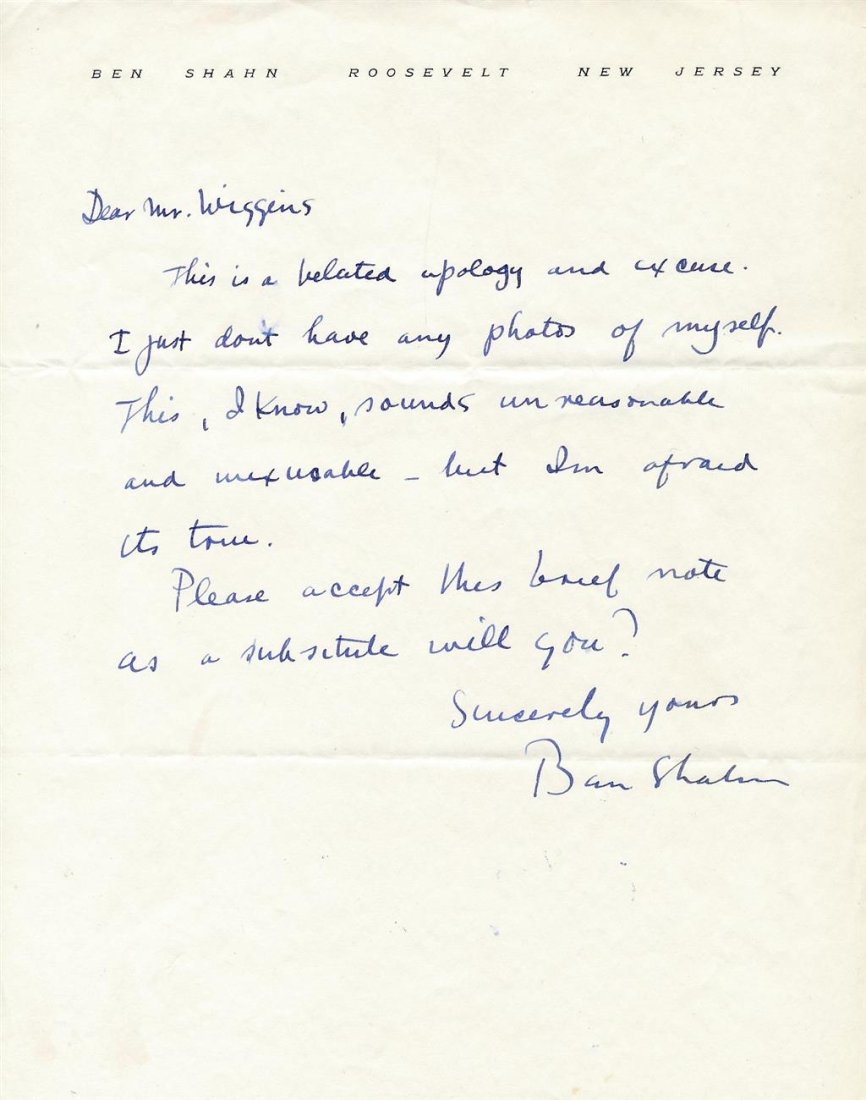 BEN SHAHN ROOSEVELT NEW JERSEY
Dear Mr. Wiggins
This is a belated apology and excuse.
I just dont have any photos of myself.
This, I know, sounds unreasonable
and inexusable – but Im afraid
its true.
Please accept this brief note
as a subsitute will you?
Sincerely yours
Ben Shahn